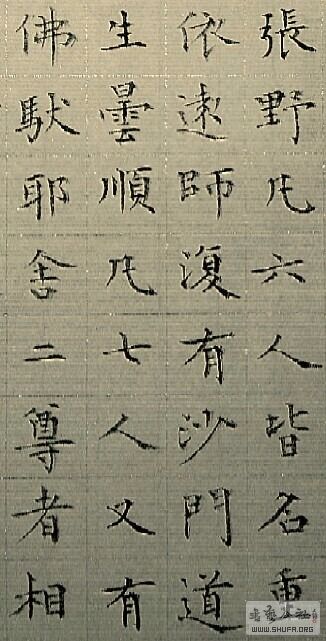 張野凡六人皆名重
依遠師復有沙門道
生曇順凡七人又有
佛馱耶舍二尊者相
WWW.SHUFA.ORG